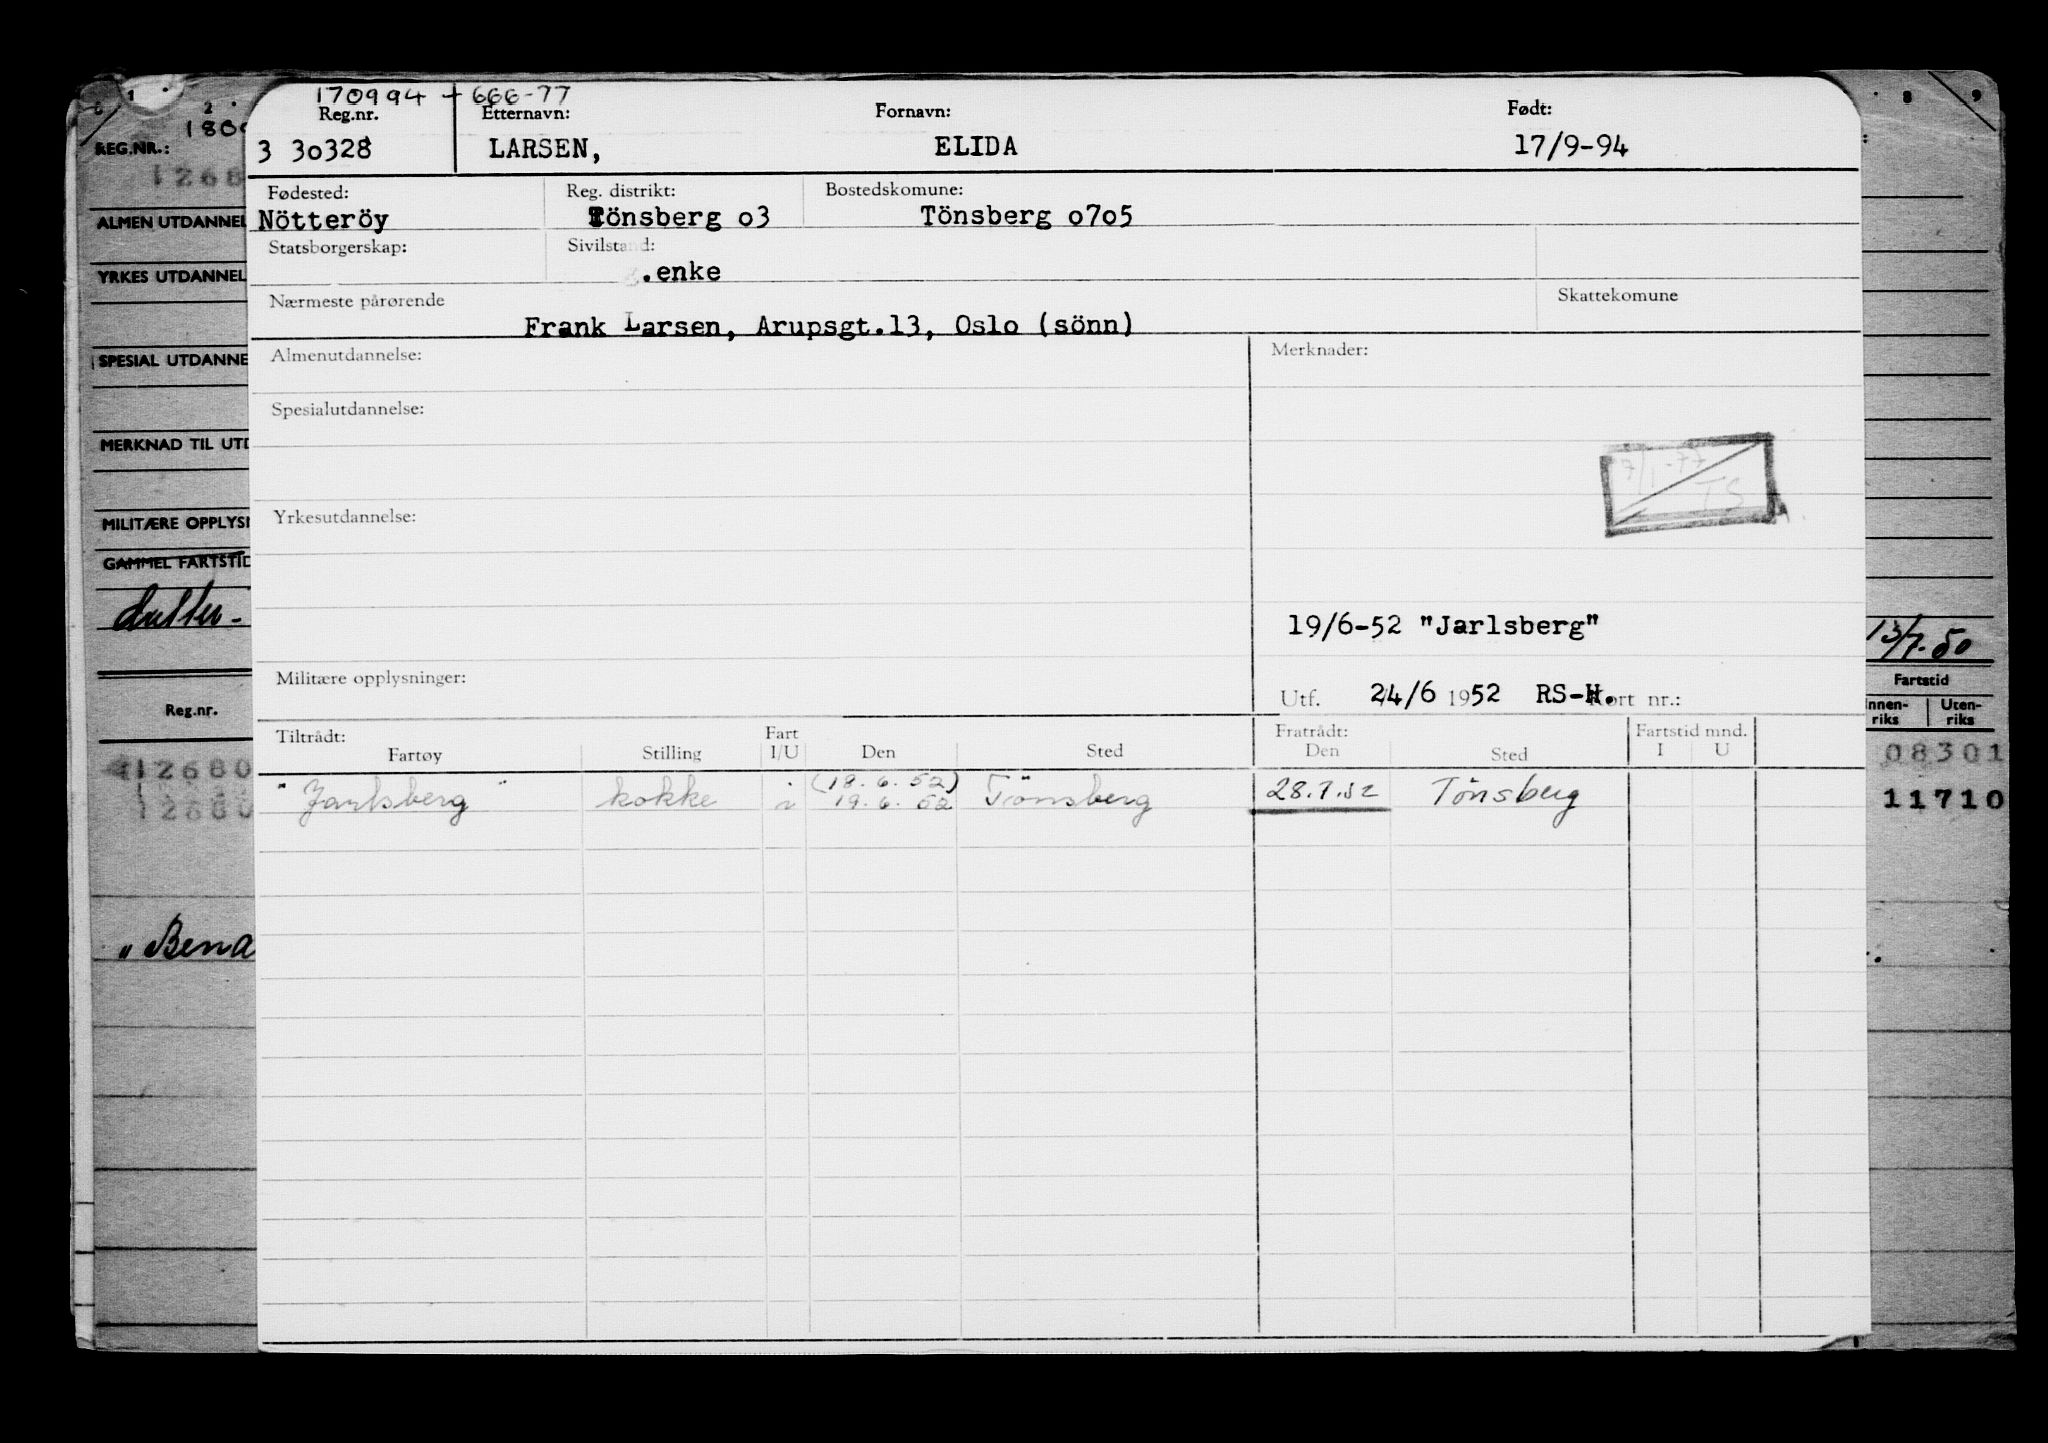 170994 - 666-77
Reg.nr. Etternavn: Fornavn: Født:
3 30328 LARSEN, ELIDA 17/9-94
Fødested: Reg. distrikt: Bostedskomune:
Nötteröy Tönsberg o3 Tönsberg o7o5
Statsborgerskap: Sivilstand:
.enke
Nærmeste pårørende Skattekomune
Frank Larsen, Arupsgt.13, Oslo (sönn)
Almenutdannelse: Merknader:
Spesialutdannelse:
7/1-77
TS
Yrkesutdannelse:
19/6-52 "Jarlsberg"
Militære opplysninger:
Utf. 24/6 1952 RS-H. Kort nr.:
Tiltrådt: Fart Fratrådt: Fartstid mnd.
Fartøy Stilling I/U Den Sted Den Sted I U
(18.6.52)
"Jarlsberg" kokke i 19.6.52 Tönsberg 28.7.52 Tönsberg
1 2 8 9
REG.NR.:
1268
ALMEN UTDANNEL
YRKES UTDANNEL
SPESIAL UTDANNE
MERKNAD TIL UTD
MILITÆRE OPPLYSN
GAMMEL FARTSTID
13/7-50
Reg.nr. Fartstid
Innen-riks Uten-riks
12680 08301
12680 11710
"Bena